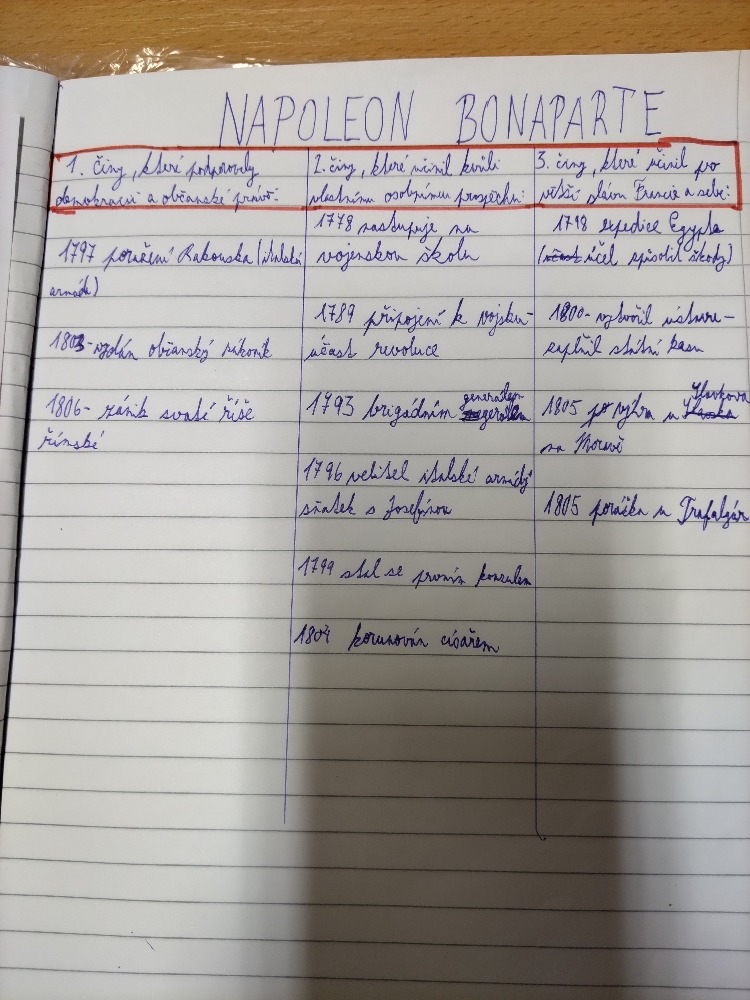 NAPOLEON BONAPARTE
1. činy, které podporovaly
demokracii a občanské právo.
2. činy, které učinil kvůli
vlastnímu osobnímu prospěchu:
3. činy, které učinil pro
větší slávu Francie a sebe:
1797 poražení Rakouska (italská
armáda)
1803- vydán občanský zákoník
1806- zánik svaté říše
římské
1778 nastupuje na
vojenskou školu
1789 připojení k vojsku-
účast revoluce
1793 brigádním generálem
1796 velitel italské armády
sňatek s Josefínou
1799 stal se prvním konzulem
1804 korunován císařem
1798 expedice Egypta
(účel způsobil škody)
1800- vytvořil ústavu-
zaplnil státní kasu
1805 po výhra u Slavkova
na Moravě
1805 porážka u Trafalgár